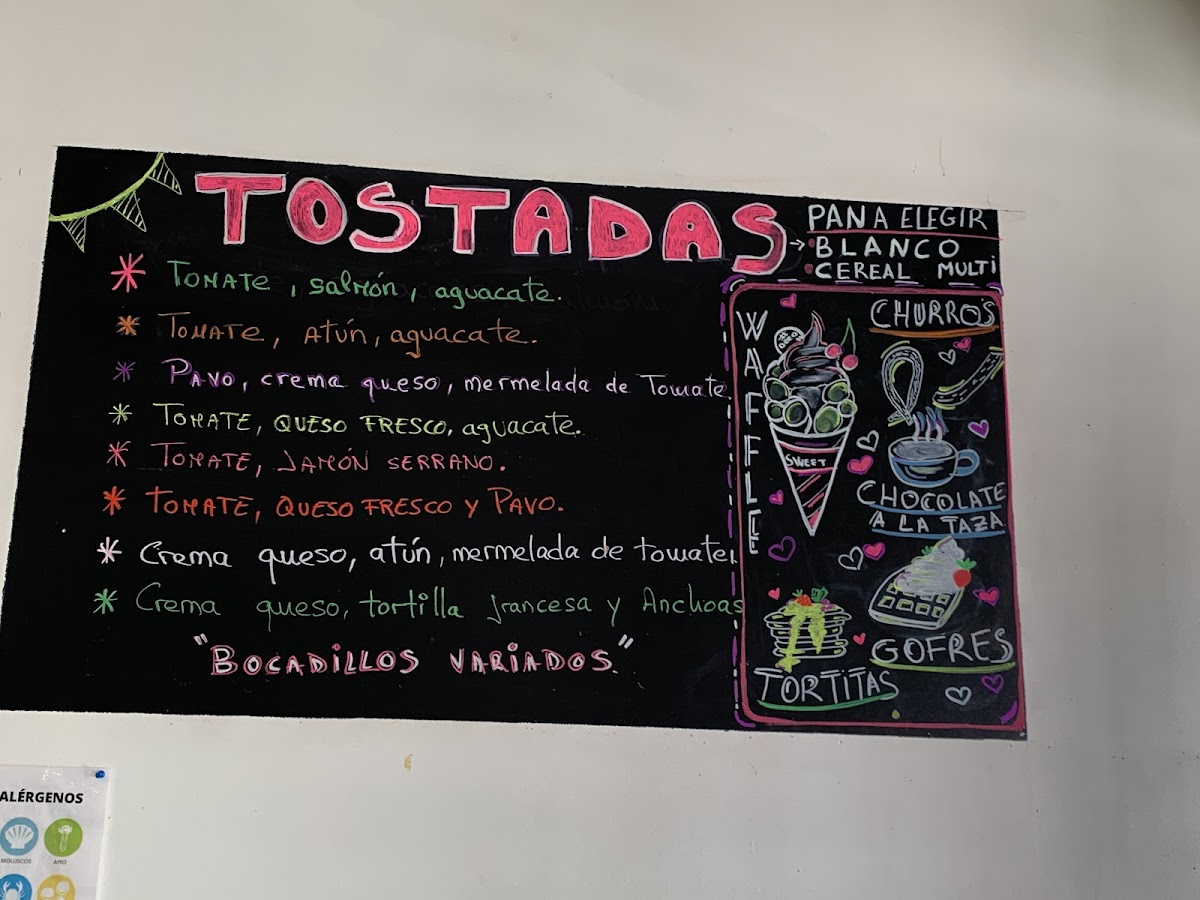 TOSTADAS
PAN A ELEGIR
BLANCO
CEREAL MULTI
TOMATE, salmón, aguacate.
TOMATE, ATÚN, aguacate.
PAVO, crema queso, mermelada de Tomate.
TOMATE, QUESO FRESCO, aguacate.
TOMATE, JAMÓN SERRANO.
TOMATE, QUESO FRESCO Y PAVO.
Crema queso, atún, mermelada de tomate.
Crema queso, tortilla francesa y Anchoas
"BOCADILLOS VARIADOS."
WAFFLE
SWEET
CHURROS
CHOCOLATE
A LA TAZA
GOFRES
TORTITAS
ALÉRGENOS
MOLUSCOS
APIO